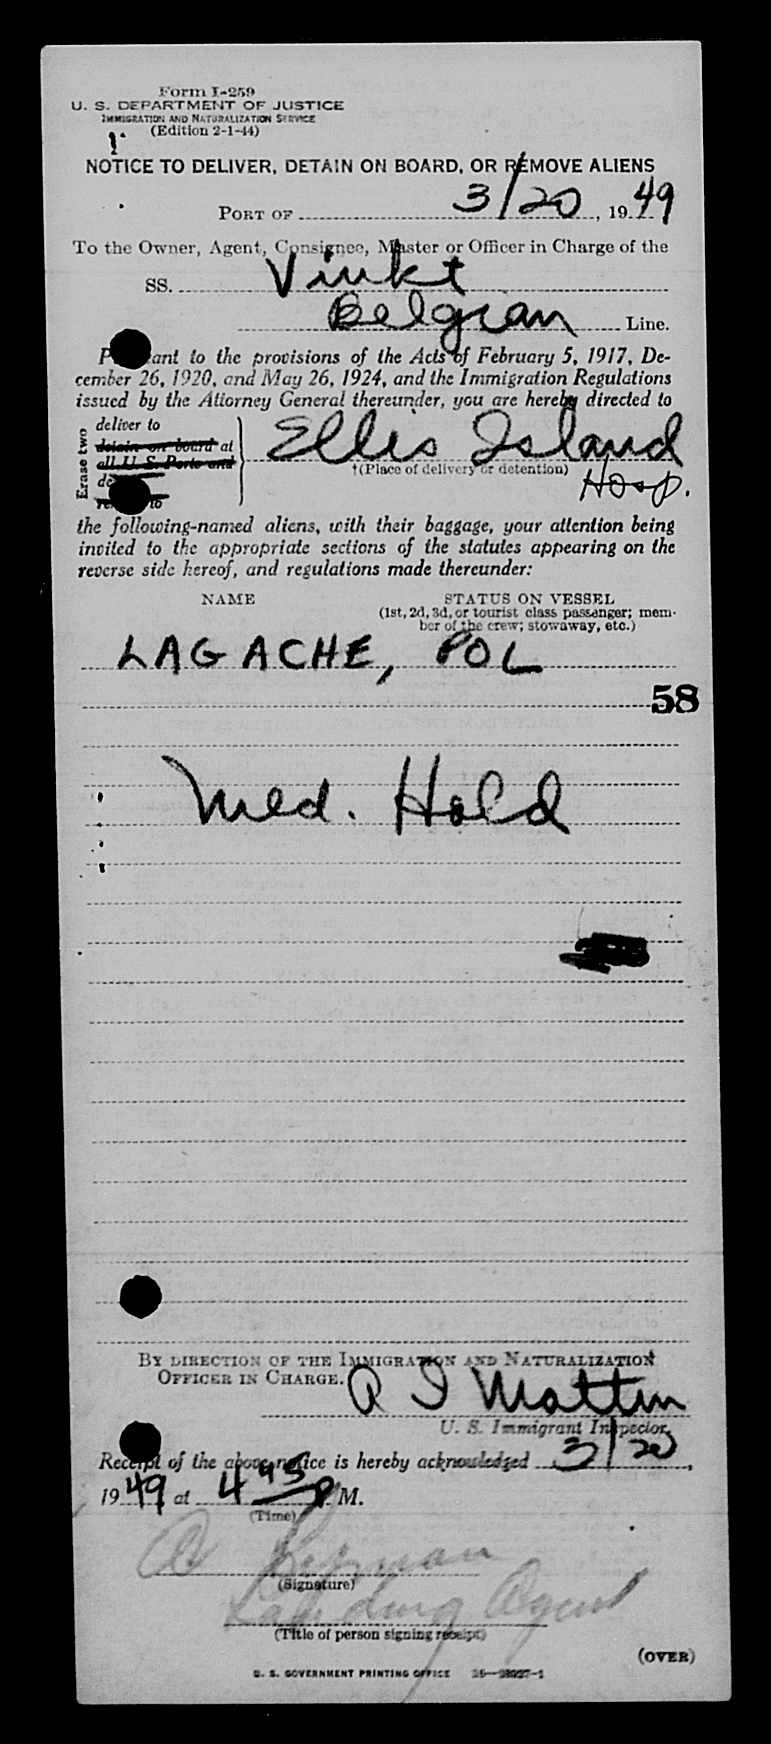 Form I-259
U. S. DEPARTMENT OF JUSTICE
IMMIGRATION AND NATURALIZATION SERVICE
(Edition 2-1-44)
NOTICE TO DELIVER, DETAIN ON BOARD, OR REMOVE ALIENS
PORT OF 3/20, 1949
To the Owner, Agent, Consignee, Master or Officer in Charge of the
SS. Vinkt
Belgian Line.
Pursuant to the provisions of the Acts of February 5, 1917, De-
cember 26, 1920, and May 26, 1924, and the Immigration Regulations
issued by the Attorney General thereunder, you are hereby directed to
Erase two
deliver to
detain on board at
all U. S. Ports and
Ellis Island
†(Place of delivery or detention)
Hosp.
to
the following-named aliens, with their baggage, your attention being
invited to the appropriate sections of the statutes appearing on the
reverse side hereof, and regulations made thereunder:
NAME STATUS ON VESSEL
(1st, 2d, 3d, or tourist class passenger; mem-
ber of the crew; stowaway, etc.)
LAGACHE, POL
58
Med. Hold
BY DIRECTION OF THE IMMIGRATION AND NATURALIZATION
OFFICER IN CHARGE.
U. S. Immigrant Inspector.
Receipt of the above notice is hereby acknowledged 3/20,
1949 at 4 45 P M.
(Time)
(Signature)
Agent
(Title of person signing receipt)
(OVER)
U. S. GOVERNMENT PRINTING OFFICE